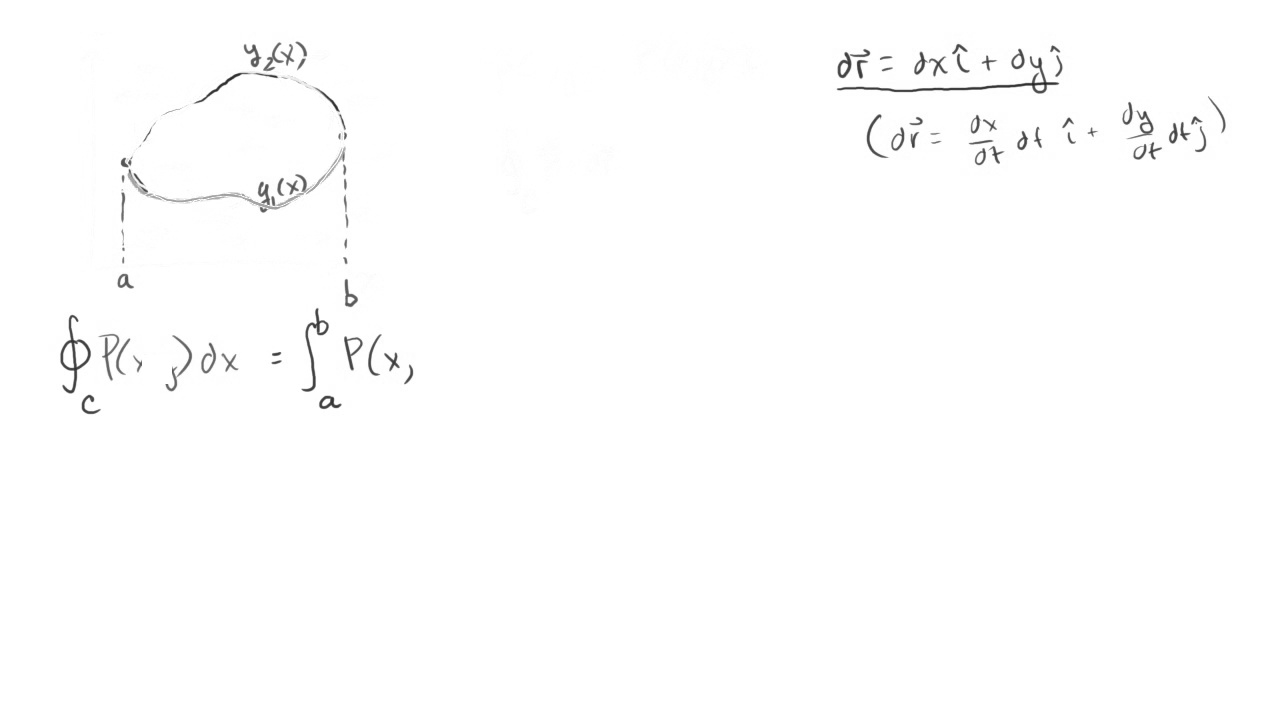 y₂(x)
y₁(x)
a
b
∮_C P(x y) dx = ∫_a^b P(x,
dr⃗ = dx î + dy ĵ
(dr⃗ = dx/dt dt î + dy/dt dt ĵ)